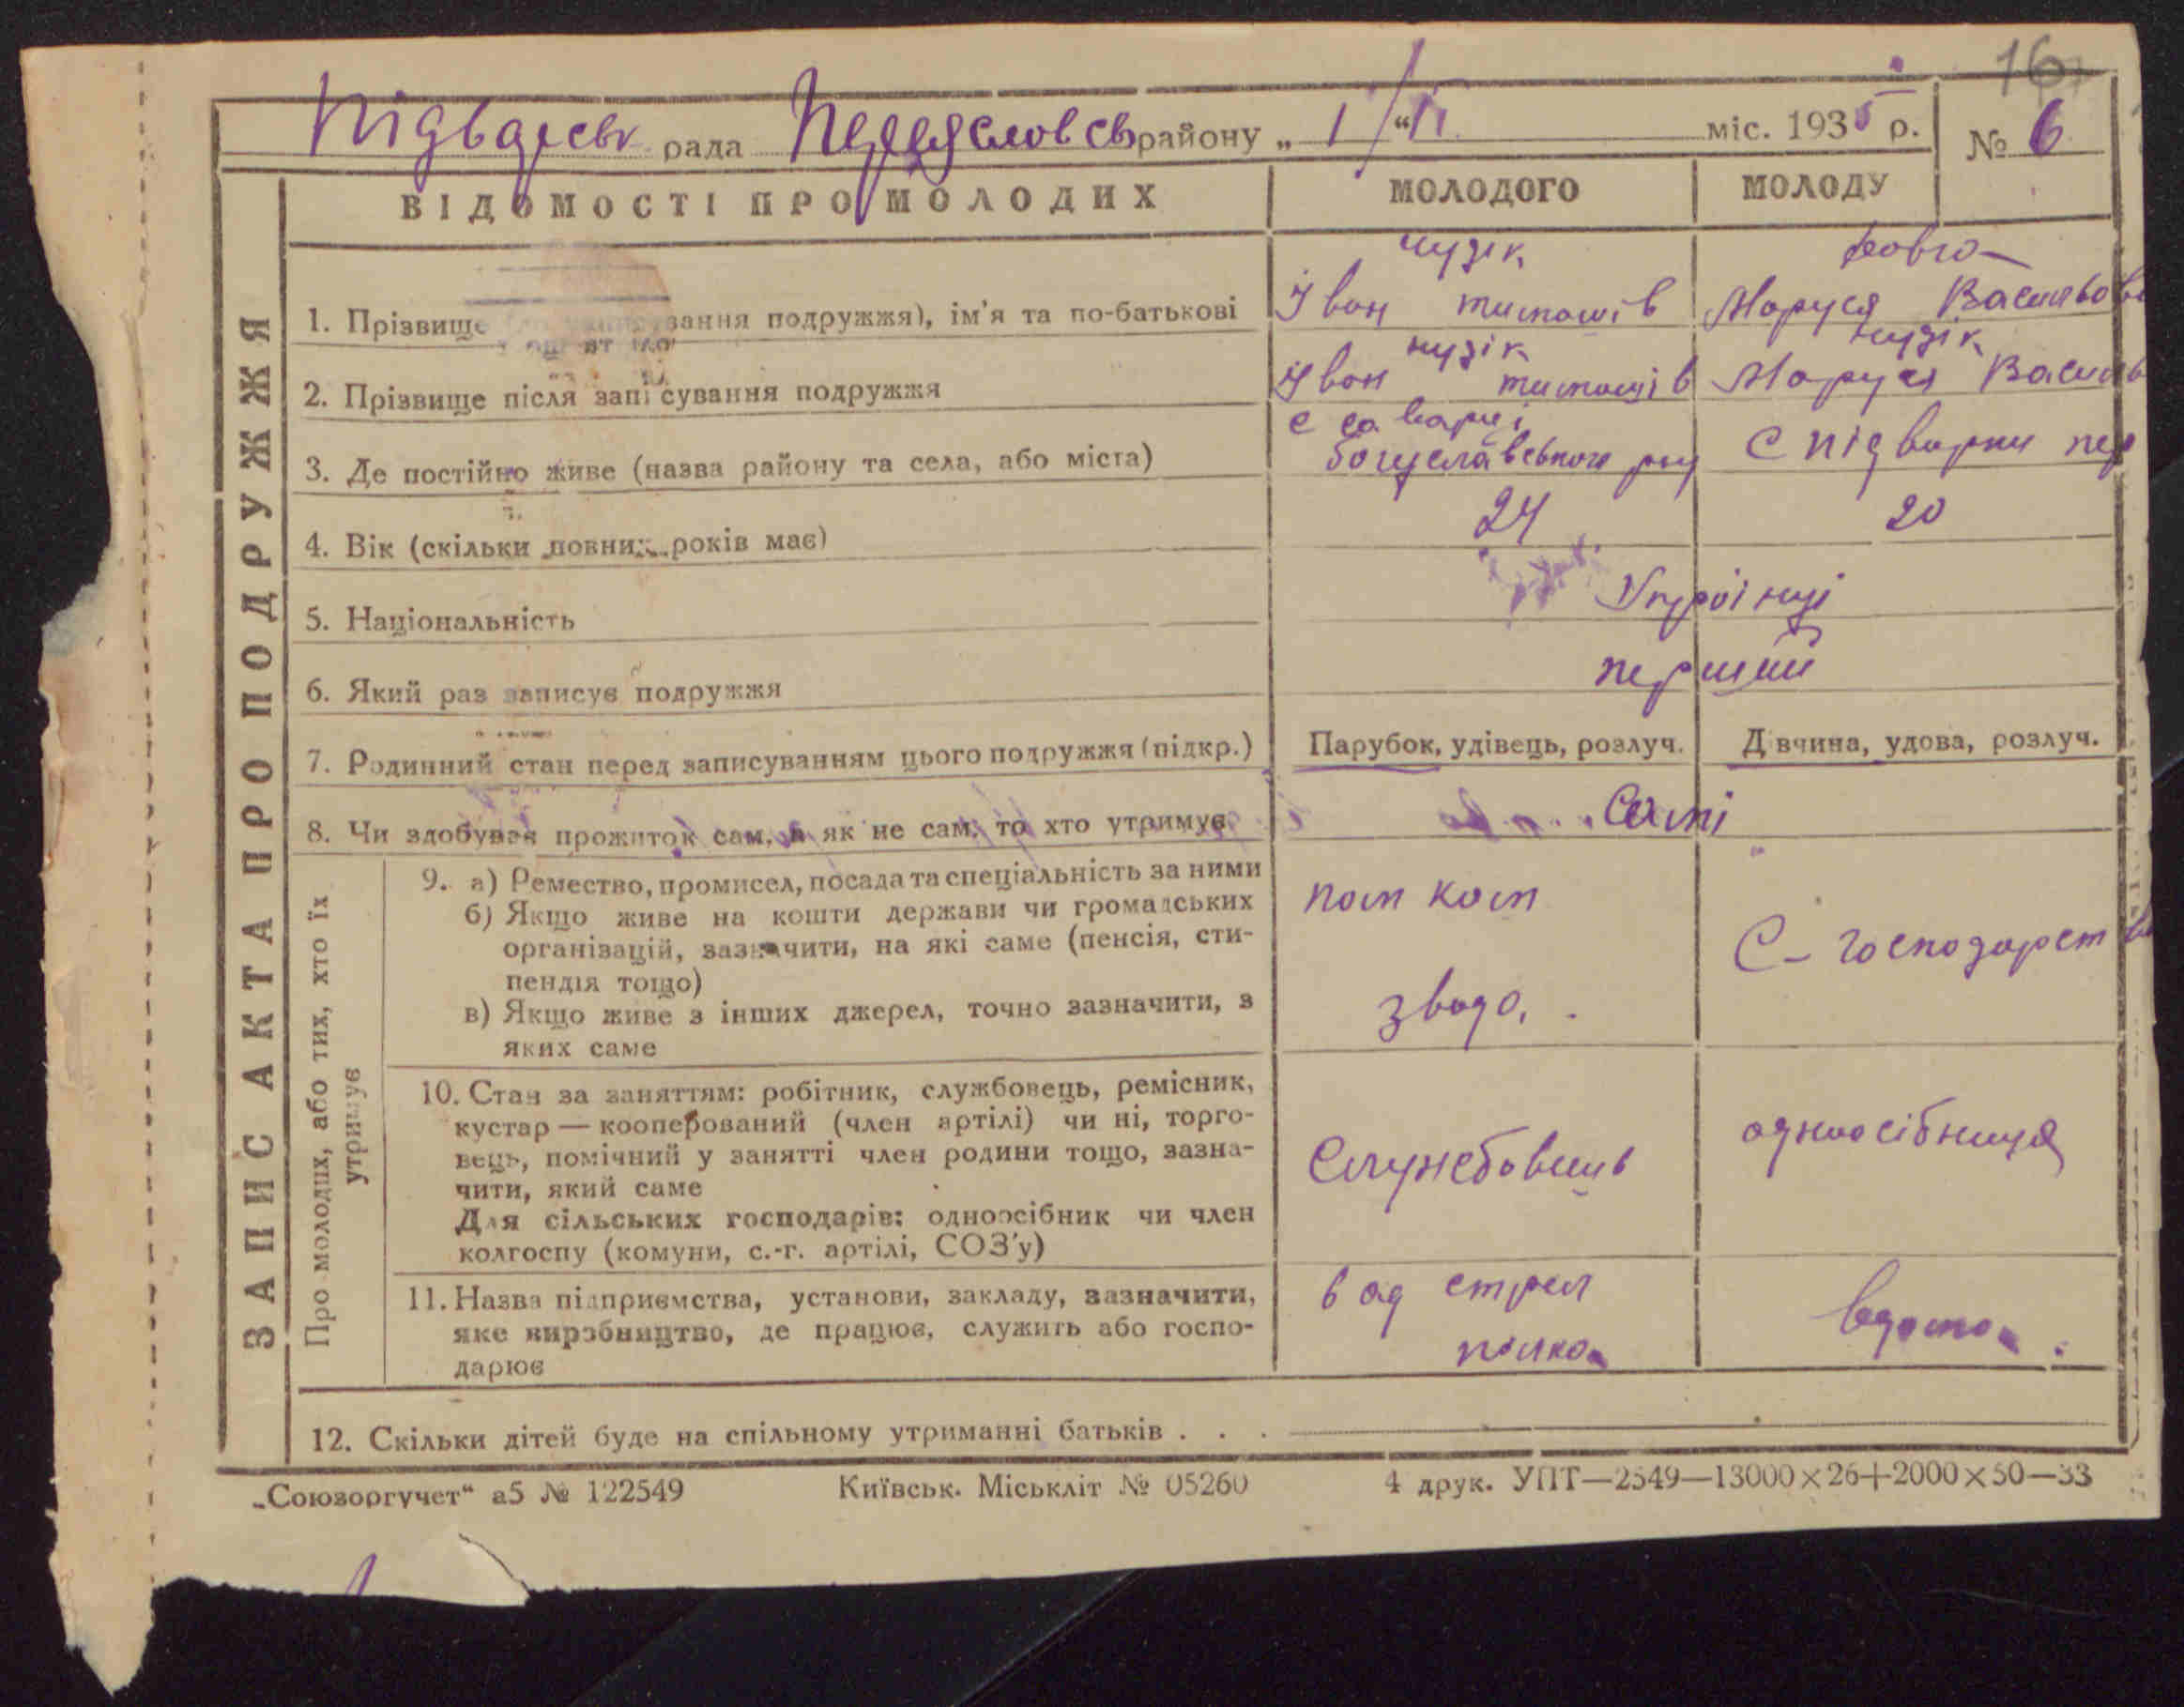 16
Підварськ рада Переяславськ району „ 1 / “ II міс. 1935 р. № 6
ВІДОМОСТІ ПРО МОЛОДИХ МОЛОДОГО МОЛОДУ
ЗАПИС АКТА ПРО ПОДРУЖЖЯ
1. Прізвище вання подружжя), ім'я та по-батькові
Іван тимошів Маруся Васильов
2. Прізвище після записування подружжя
Іван тимошів Маруся Василь
3. Де постійно живе (назва району та села, або міста)
с саварці
богуславського р-ну С підварки пер
4. Вік (скільки повних років має) 24 20
5. Національність Українці
6. Який раз записує подружжя перший
7. Родинний стан перед записуванням цього подружжя (підкр.) Парубок, удівець, розлуч. Дівчина, удова, розлуч.
8. Чи здобуває прожиток сам, а як не сам, то хто утримує Самі
Про молодих, або тих, хто їх
утримує
9. а) Ремество, промисел, посада та спеціальність за ними
б) Якщо живе на кошти держави чи громадських
організацій, зазначити, на які саме (пенсія, сти-
пендія тощо)
в) Якщо живе з інших джерел, точно зазначити, з
яких саме
пом ком
звода.
С-господарств
10. Стан за заняттям: робітник, службовець, ремісник,
кустар — кооперований (член артілі) чи ні, торго-
вець, помічний у занятті член родини тощо, зазна-
чити, який саме
Для сільських господарів: одноосібник чи член
колгоспу (комуни, с.-г. артілі, СОЗ'у)
Службовець
одноосібниця
11. Назва підприємства, установи, закладу, зазначити,
яке виробництво, де працює, служить або госпо-
дарює
стрел
полка
вдома.
12. Скільки дітей буде на спільному утриманні батьків . . .
„Союзоргучет“ а5 № 122549 Київськ. Міськліт № 05260 4 друк. УПТ—2549—13000×26+2000×50—33